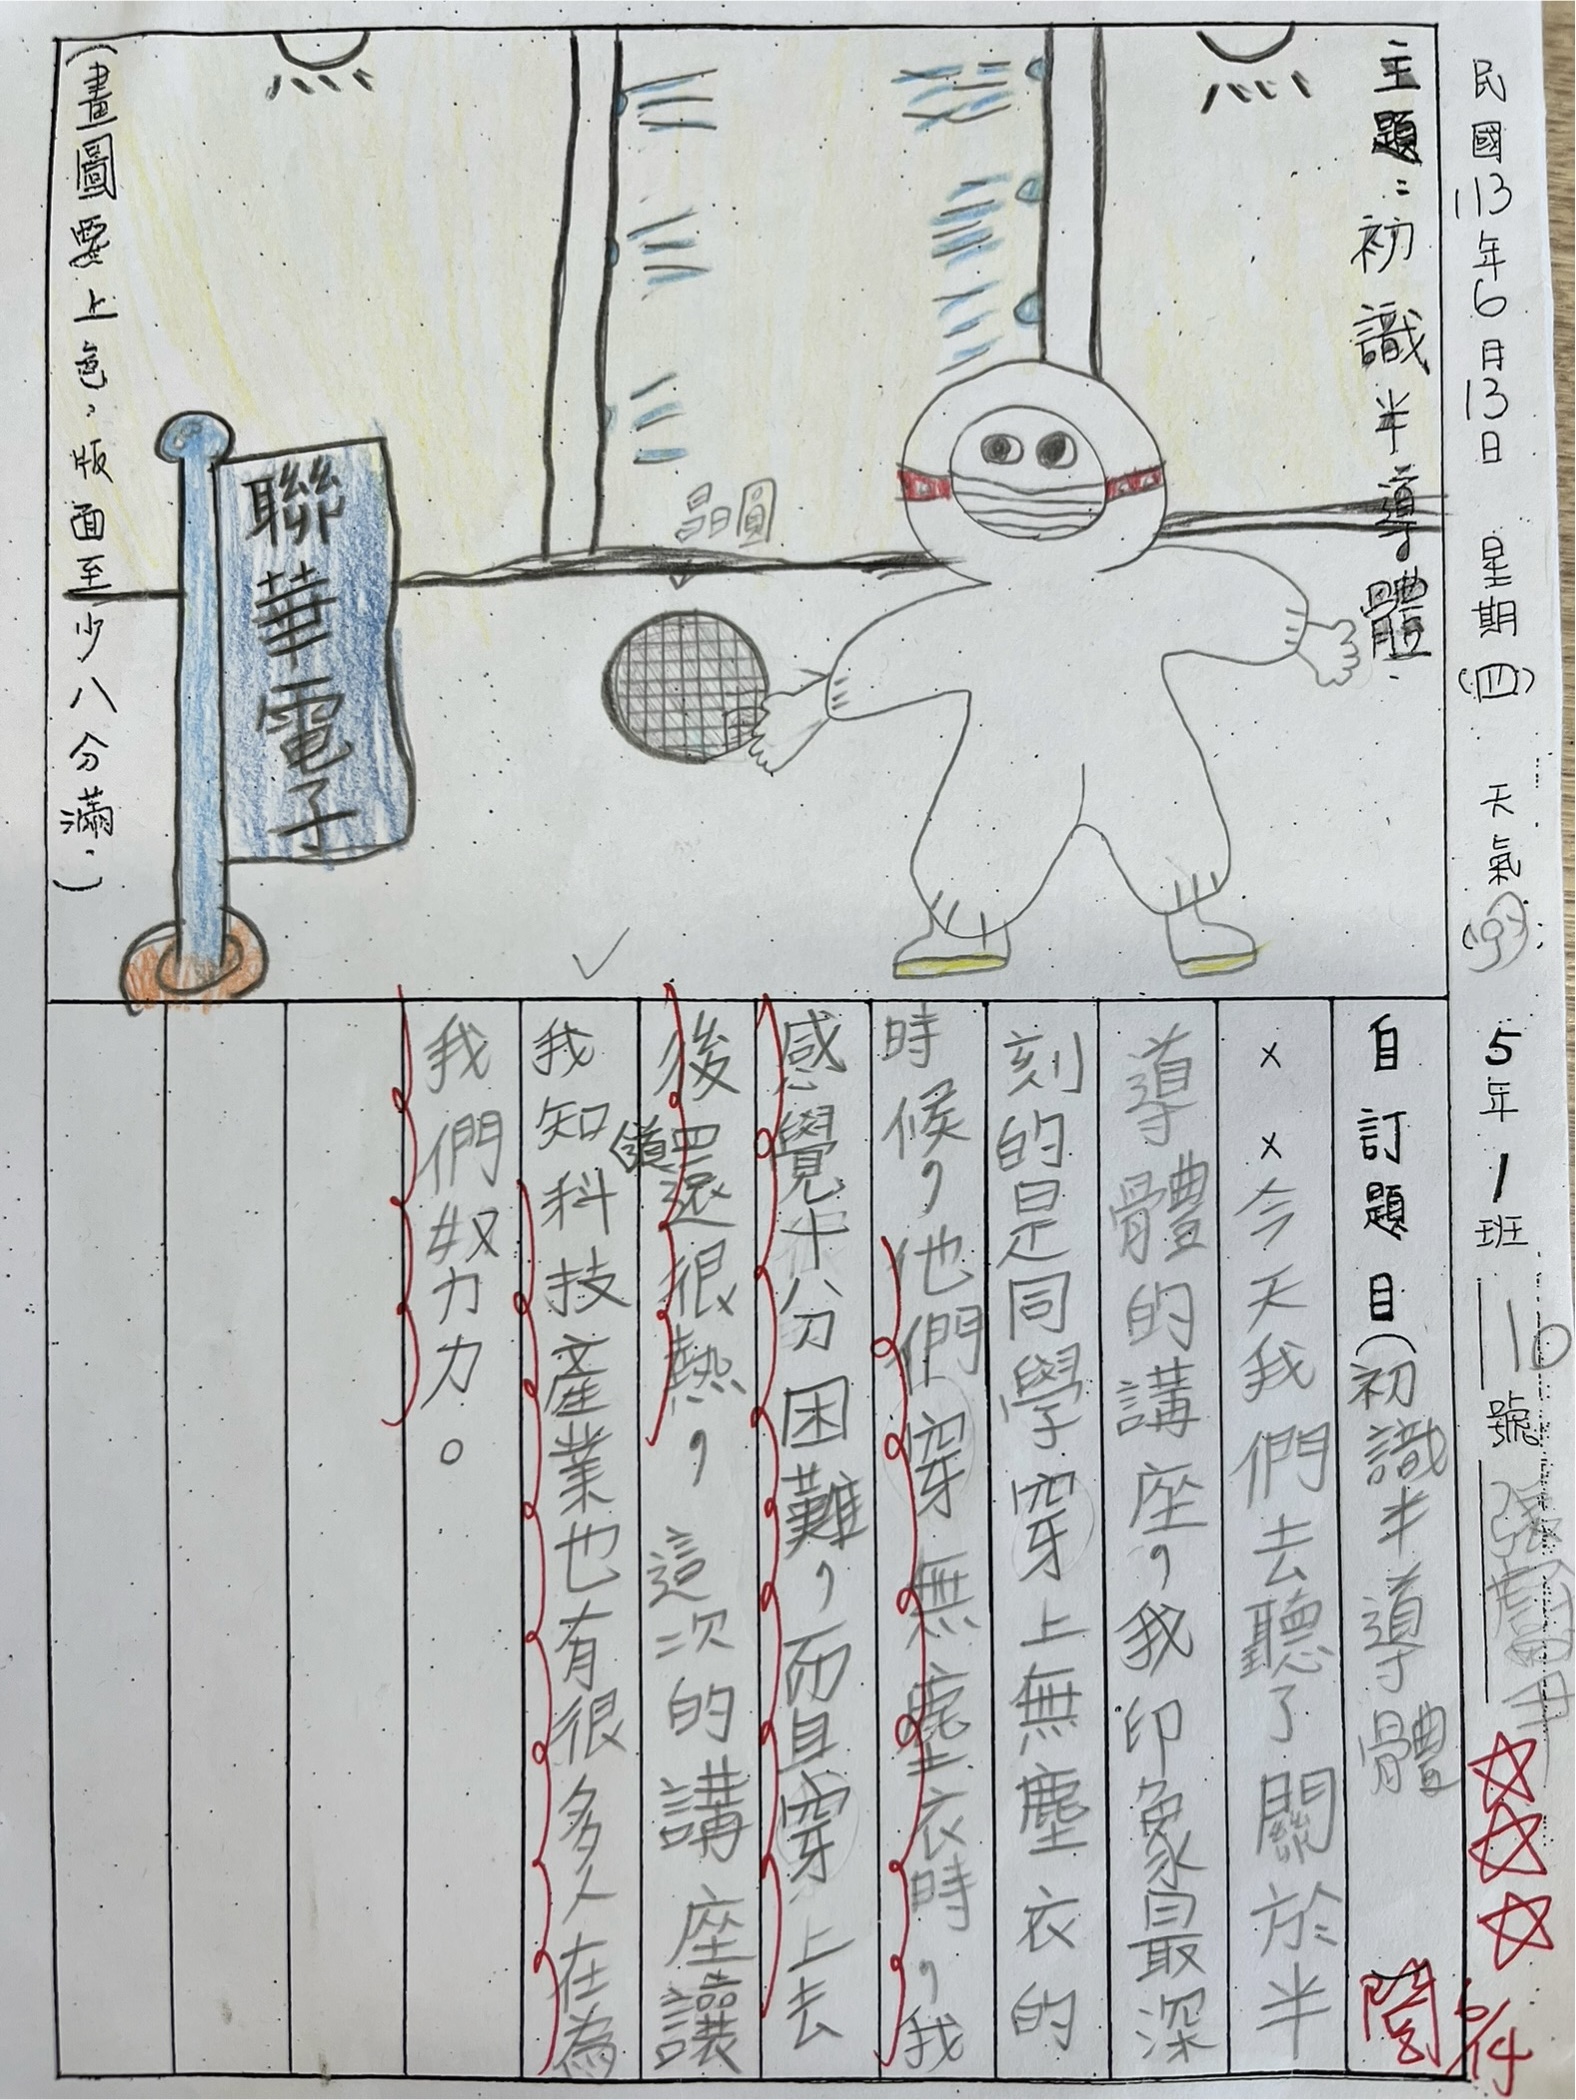 民國113年6月13日 星期(四) 天氣 5年1班 10號
主題:初識半導體
晶圓
聯華電子
(畫圖要上色,版面至少八分滿。)
自訂題目(初識半導體
××今天我們去聽了關於半
導體的講座,我印象最深
刻的是同學穿上無塵衣的
時候,他們穿無塵衣時,我
感覺十分困難,而且穿上去
後還很熱,這次的講座讓
我知道科技產業也有很多人在為
我們努力。
閱 6/14